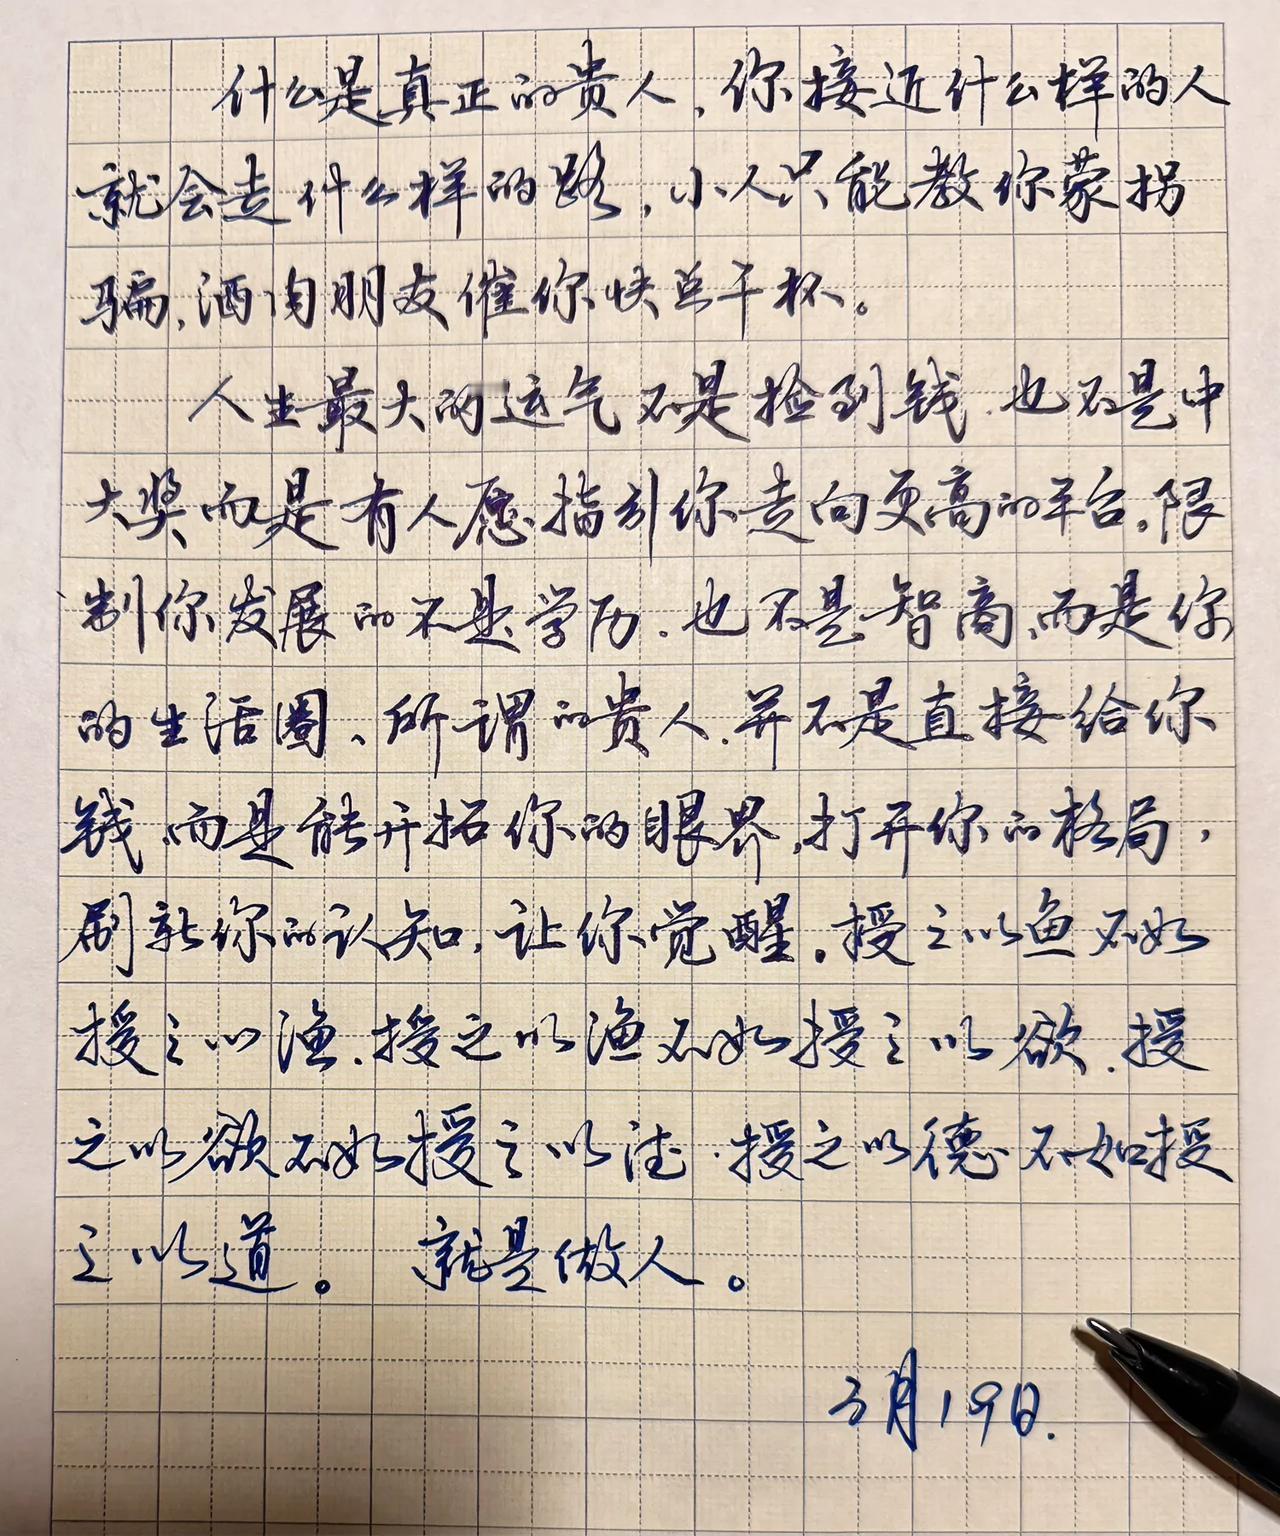 什么是真正的贵人，你接近什么样的人
就会走什么样的路，小人只能教你蒙拐
骗，酒肉朋友催你快点干杯。
人生最大的运气不是捡到钱，也不是中
大奖而是有人愿指引你走向更高的平台。限
制你发展的不是学历，也不是智商，而是你
的生活圈、所谓的贵人，并不是直接给你
钱，而是能开拓你的眼界，打开你的格局，
刷新你的认知，让你觉醒。授之以鱼不如
授之以渔，授之以渔不如授之以欲，授
之以欲不如授之以德，授之以德不如授
之以道。 就是做人。
3月19日.